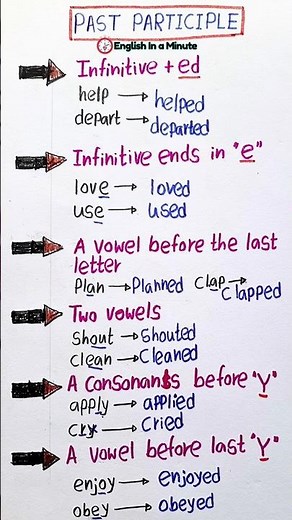 PAST PARTICIPLE
English In a Minute
Infinitive + ed
help → helped
depart → departed
Infinitive ends in "e"
love → loved
use → used
A vowel before the last
letter
Plan → Planned Clap →
Clapped
Two vowels
Shout → Shouted
clean → Cleaned
A Consonants before "Y"
apply → applied
Cry → Cried
A vowel before last "Y"
enjoy → enjoyed
obey → obeyed